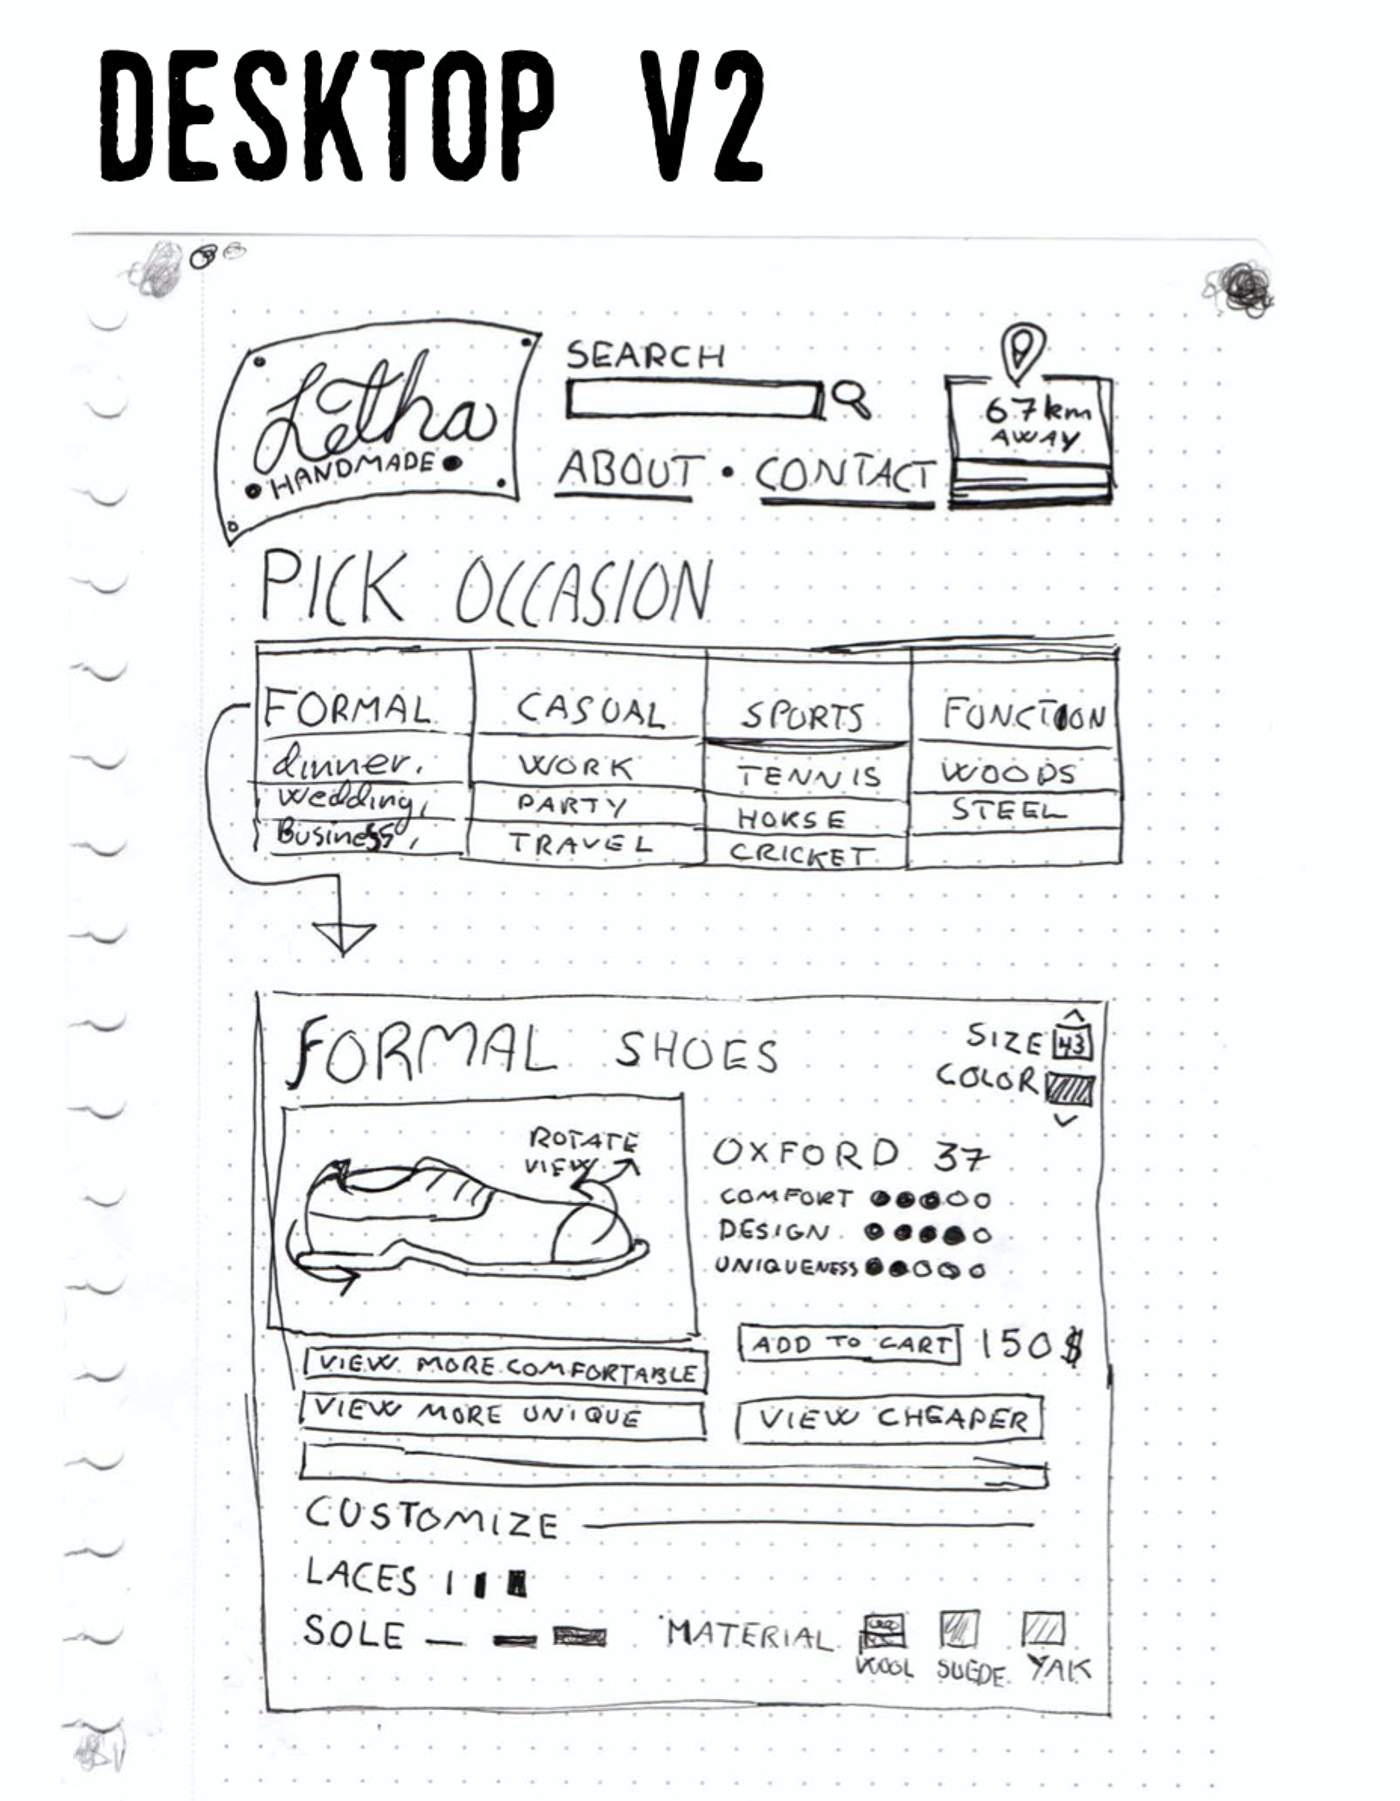 DESKTOP V2
Letha
HANDMADE
SEARCH
ABOUT • CONTACT
67km
AWAY
PICK OCCASION
FORMAL CASUAL SPORTS FUNCTION
dinner, WORK TENNIS WOODS
wedding, PARTY HORSE STEEL
Business, TRAVEL CRICKET
FORMAL SHOES
SIZE 43
COLOR
ROTATE
VIEW
OXFORD 37
COMFORT
DESIGN
UNIQUENESS
ADD TO CART 150$
VIEW MORE COMFORTABLE
VIEW MORE UNIQUE
VIEW CHEAPER
CUSTOMIZE
LACES
SOLE
MATERIAL
WOOL SUEDE YAK